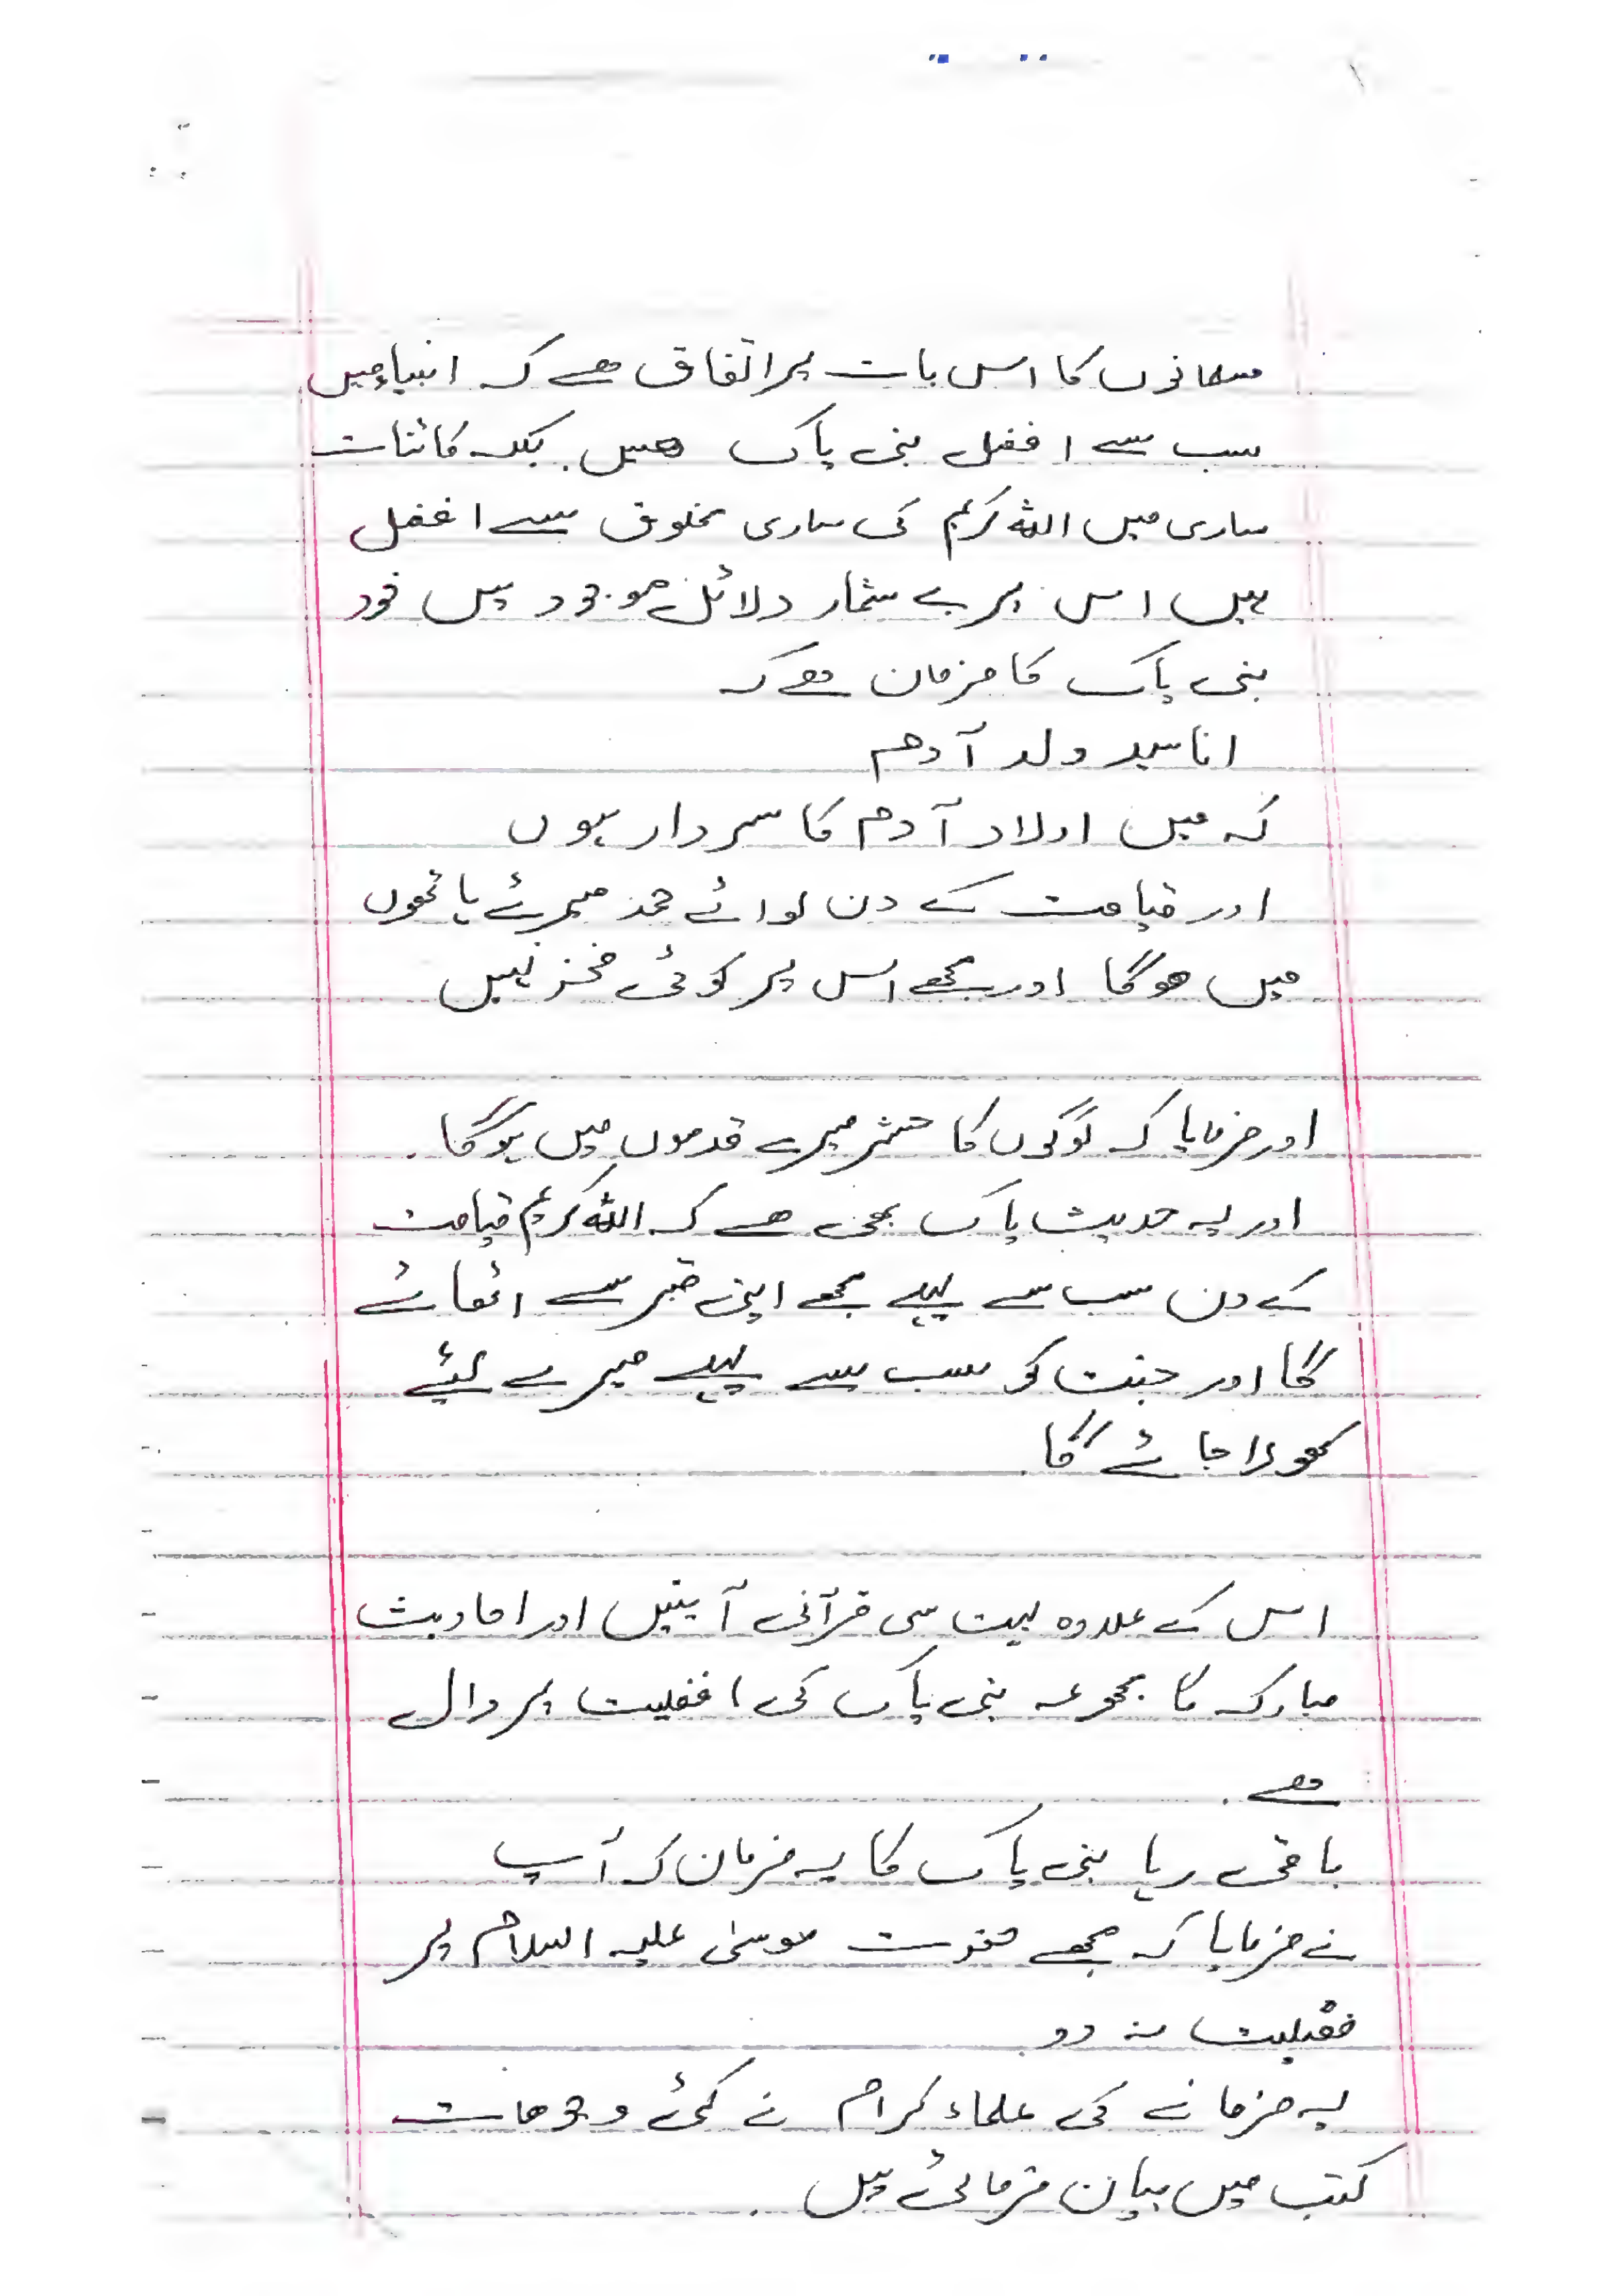 مسلمانوں کا اس بات پر اتفاق ھے کہ انبیاء میں
سب سے افضل نبی پاک ھیں بلکہ کائنات
ساری میں اللہ کریم کی ساری مخلوق سے افضل
ہیں اس پر بے شمار دلائل موجود ہیں خود
نبی پاک کا فرمان ھے کہ
انا سید ولد آدم
کہ میں اولاد آدم کا سردار ہوں
اور قیامت کے دن لوائے حمد میرے ہاتھوں
میں ھوگا اور مجھے اس پر کوئی فخر نہیں
اور فرمایا کہ لوگوں کا حشر میرے قدموں میں ہوگا.
اور یہ حدیث پاک بھی ھے کہ اللہ کریم قیامت
کے دن سب سے پہلے مجھے اپنی قبر سے اٹھائے
گا اور جنت کو سب سے پہلے میرے لیئے
کھولا جائے گا
اس کے علاوہ بہت سی قرآنی آیتیں اور احادیث
مبارکہ کا مجموعہ نبی پاک کی افضلیت پر دال
ھے.
باقی رہا نبی پاک کا یہ فرمان کہ آپ
نے فرمایا کہ مجھے حضرت موسیٰ علیہ السلام پر
فضیلت نہ دو
یہ فرمانے کی علماء کرام نے کئی وجوھات
کتب میں بیان فرمائی ہیں.